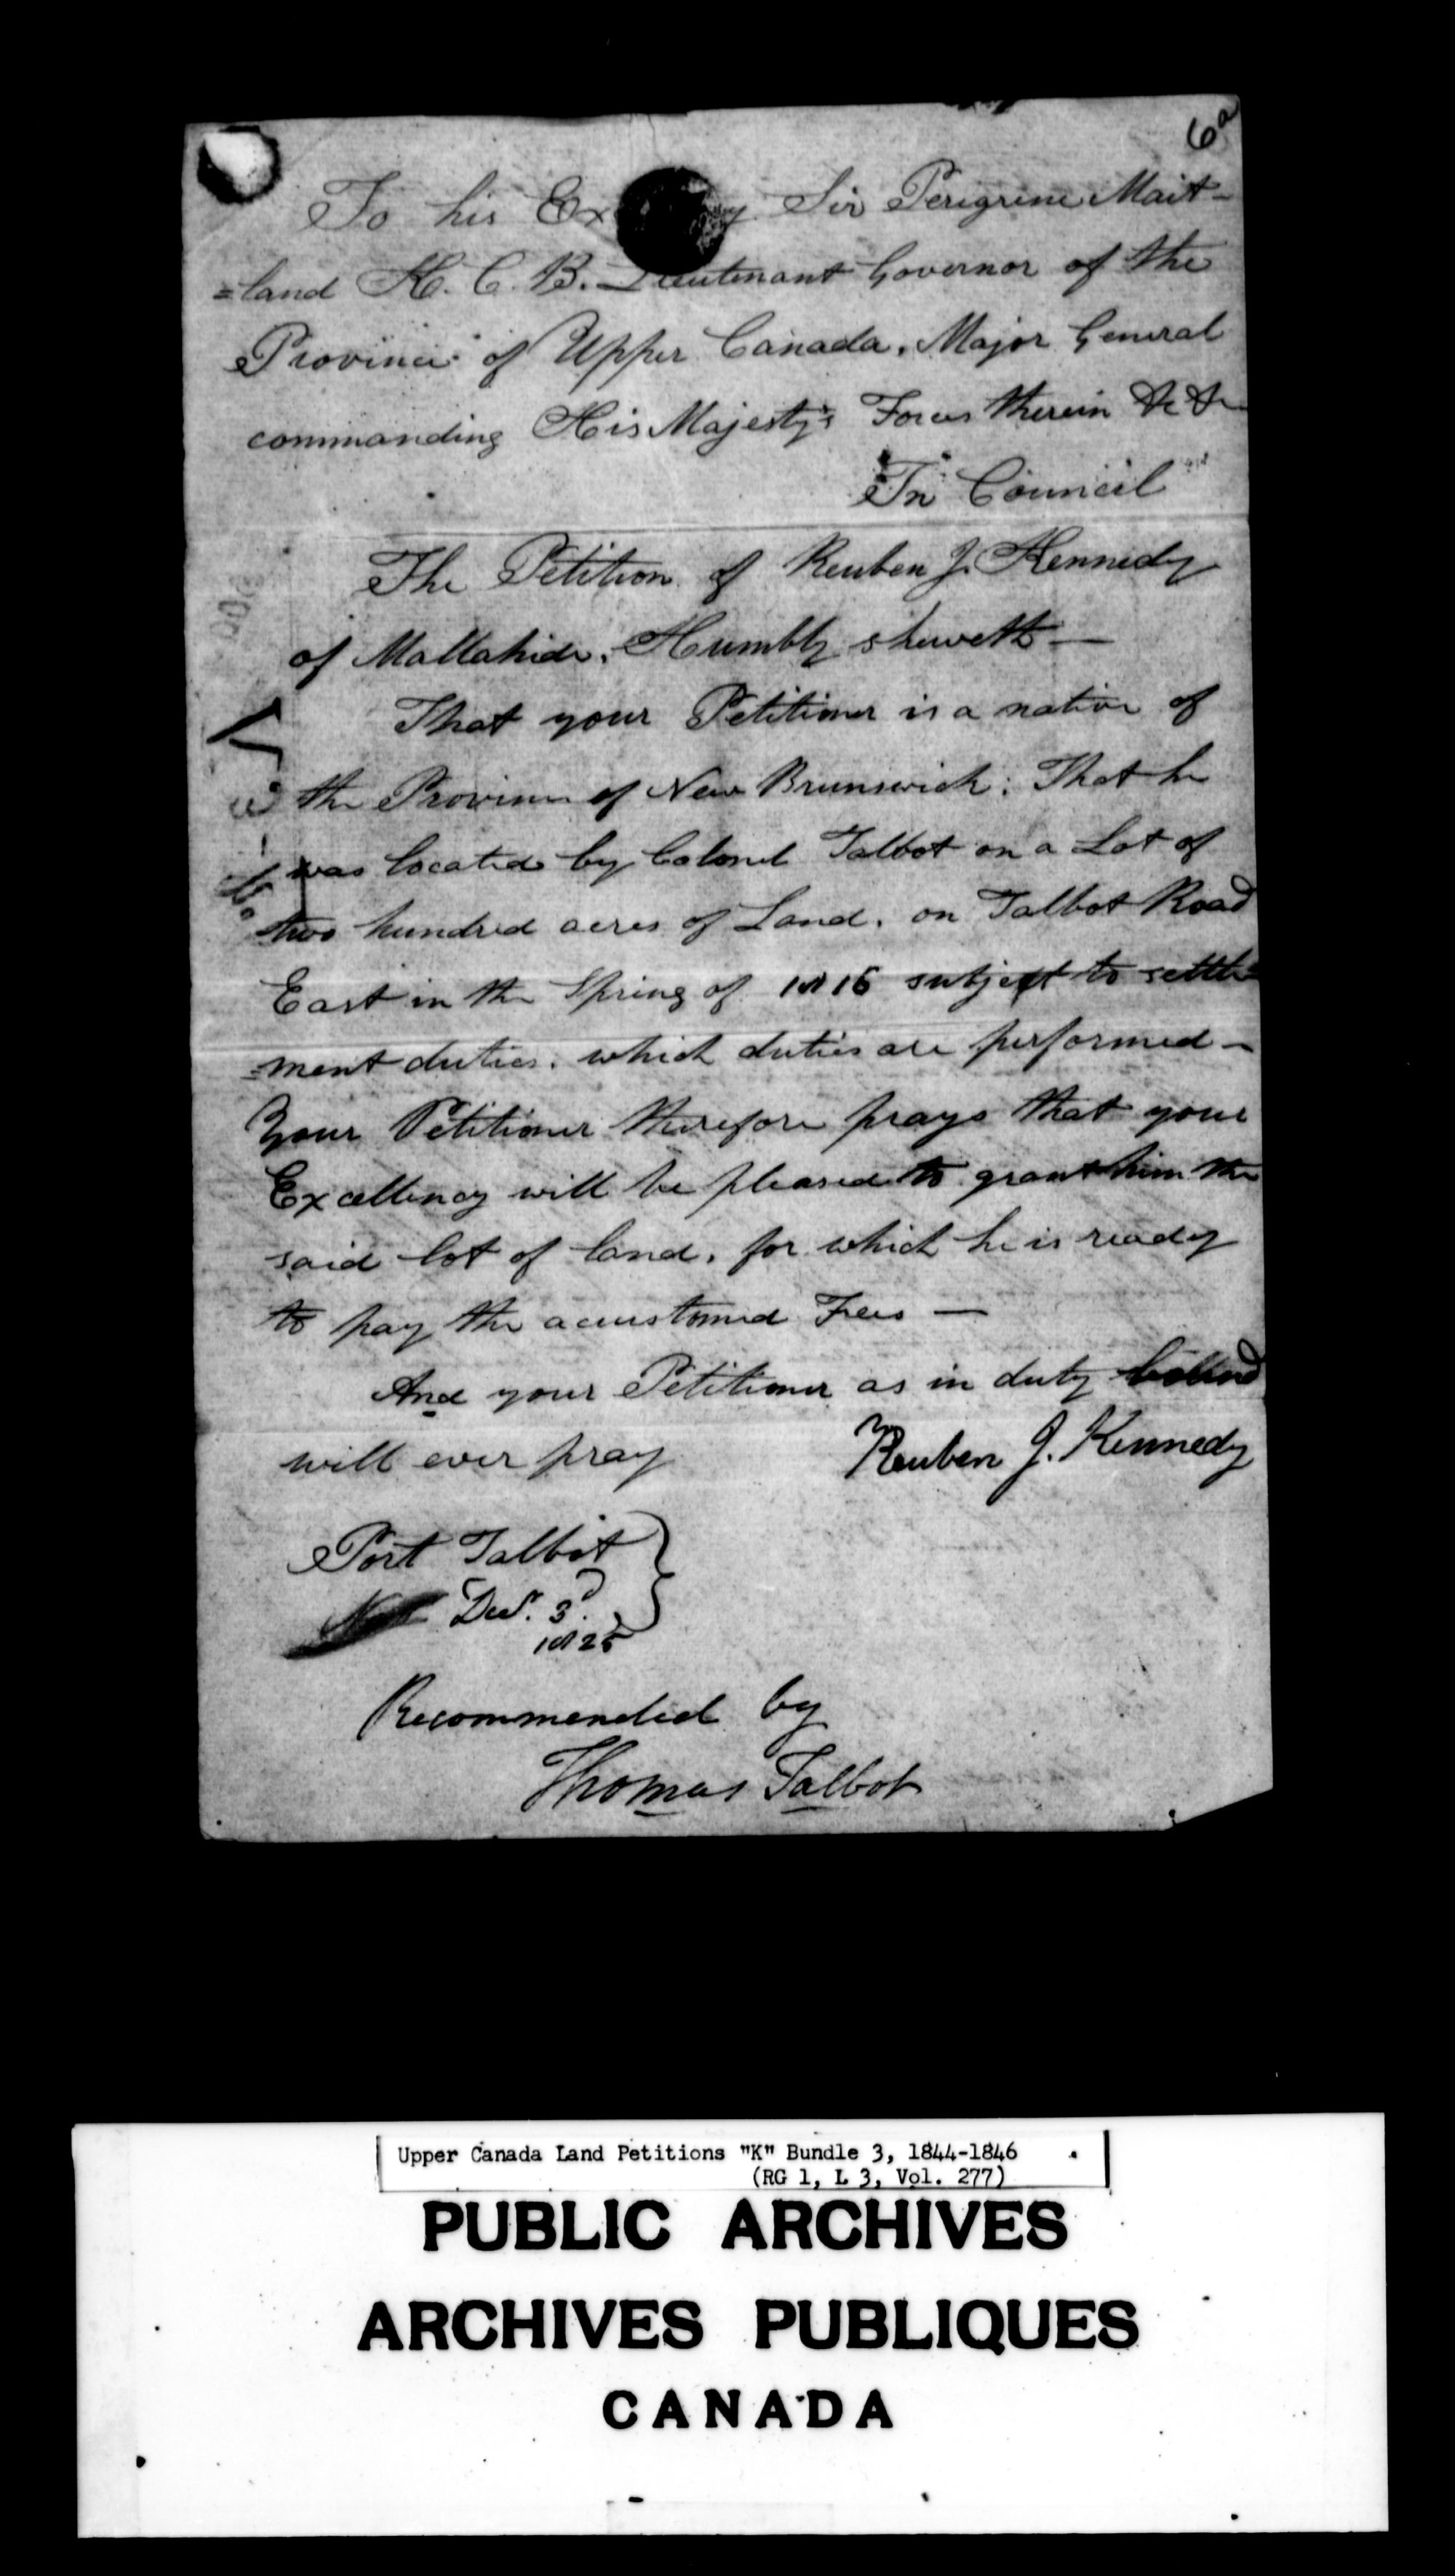 6a
To his Ex y Sir Peregrine Mait-
=land K. C. B. Lieutenant Governor of the
Province of Upper Canada, Major General
commanding His Majesty's Forces therein &c &c
In Council
The Petition of Reuben J. Kennedy
of Mallahide, Humbly sheweth —
That your Petitioner is a native of
the Province of New Brunswick; That he
was located by Colonel Talbot on a Lot of
two hundred acres of Land, on Talbot Road
East in the Spring of 1816 subject to settle=
=ment duties, which duties are performed —
Your Petitioner therefore prays that your
Excellency will be pleased to grant him the
said lot of land, for which he is ready
to pay the accustomed Fees —
And your Petitioner as in duty bound
will ever pray
Reuben J. Kennedy
Port Talbot
Decr. 3d.
1825
Recommended by
Thomas Talbot
Upper Canada Land Petitions "K" Bundle 3, 1844-1846
(RG 1, L 3, Vol. 277)
PUBLIC ARCHIVES
ARCHIVES PUBLIQUES
CANADA